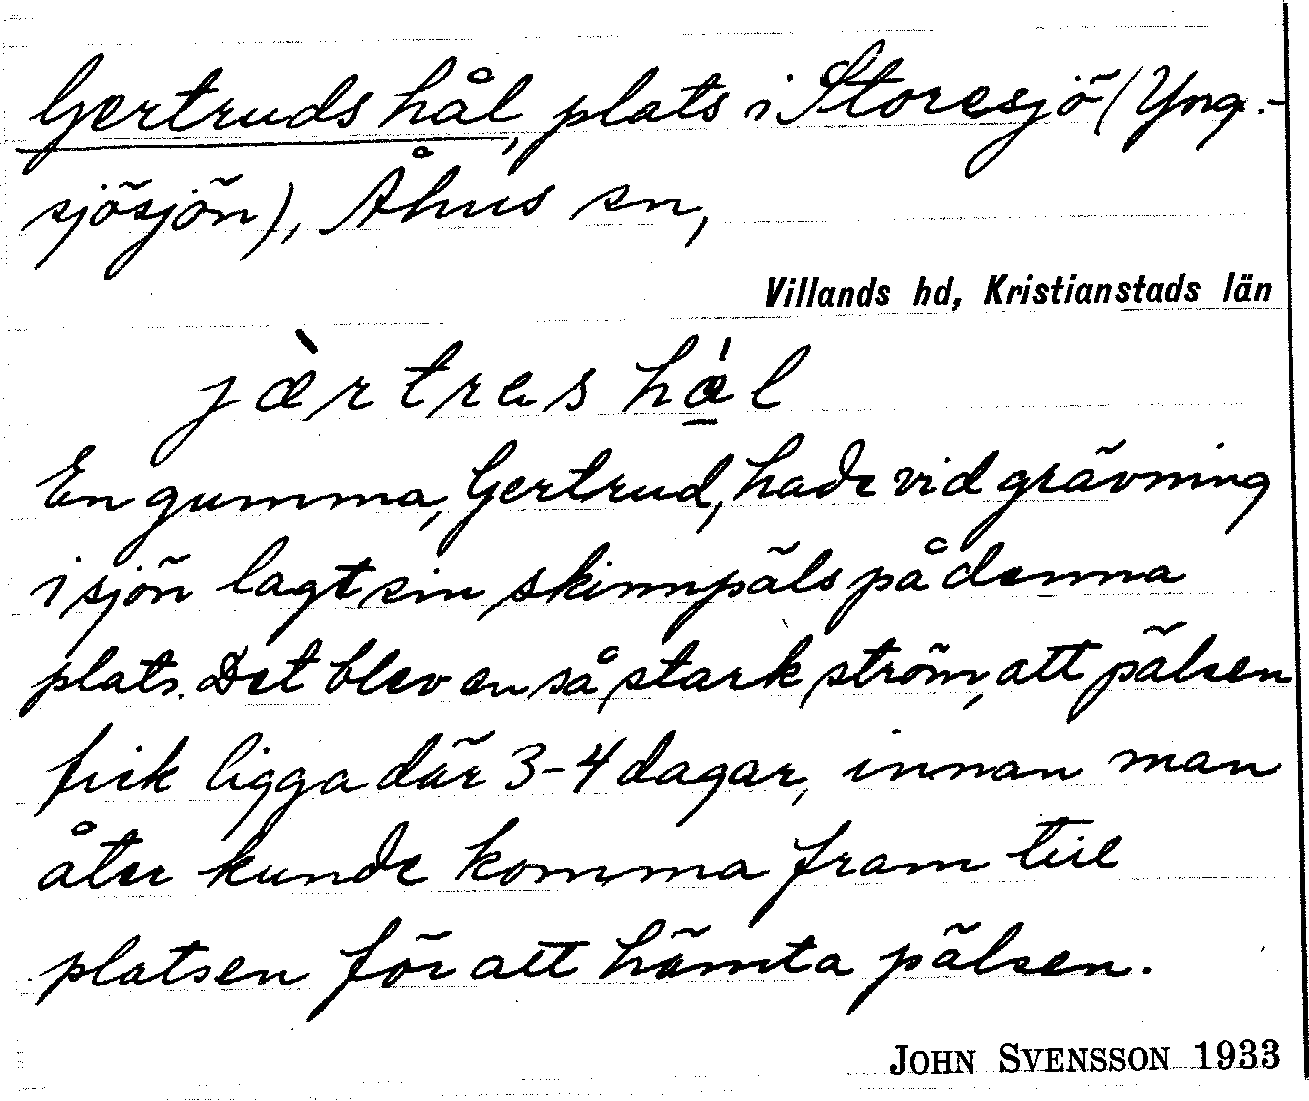 Gertruds hål, plats i Storesjö (Yng-
sjösjön), Åhus sn,
Villands hd, Kristianstads län
jæ̀rtras hál
En gumma, Gertrud, hade vid grävning
i sjön lagt sin skinnpäls på denna
plats. Det blev en så stark ström, att pälsen
fick ligga där 3-4 dagar, innan man
åter kunde komma fram till
platsen för att hämta pälsen.
JOHN SVENSSON 1933